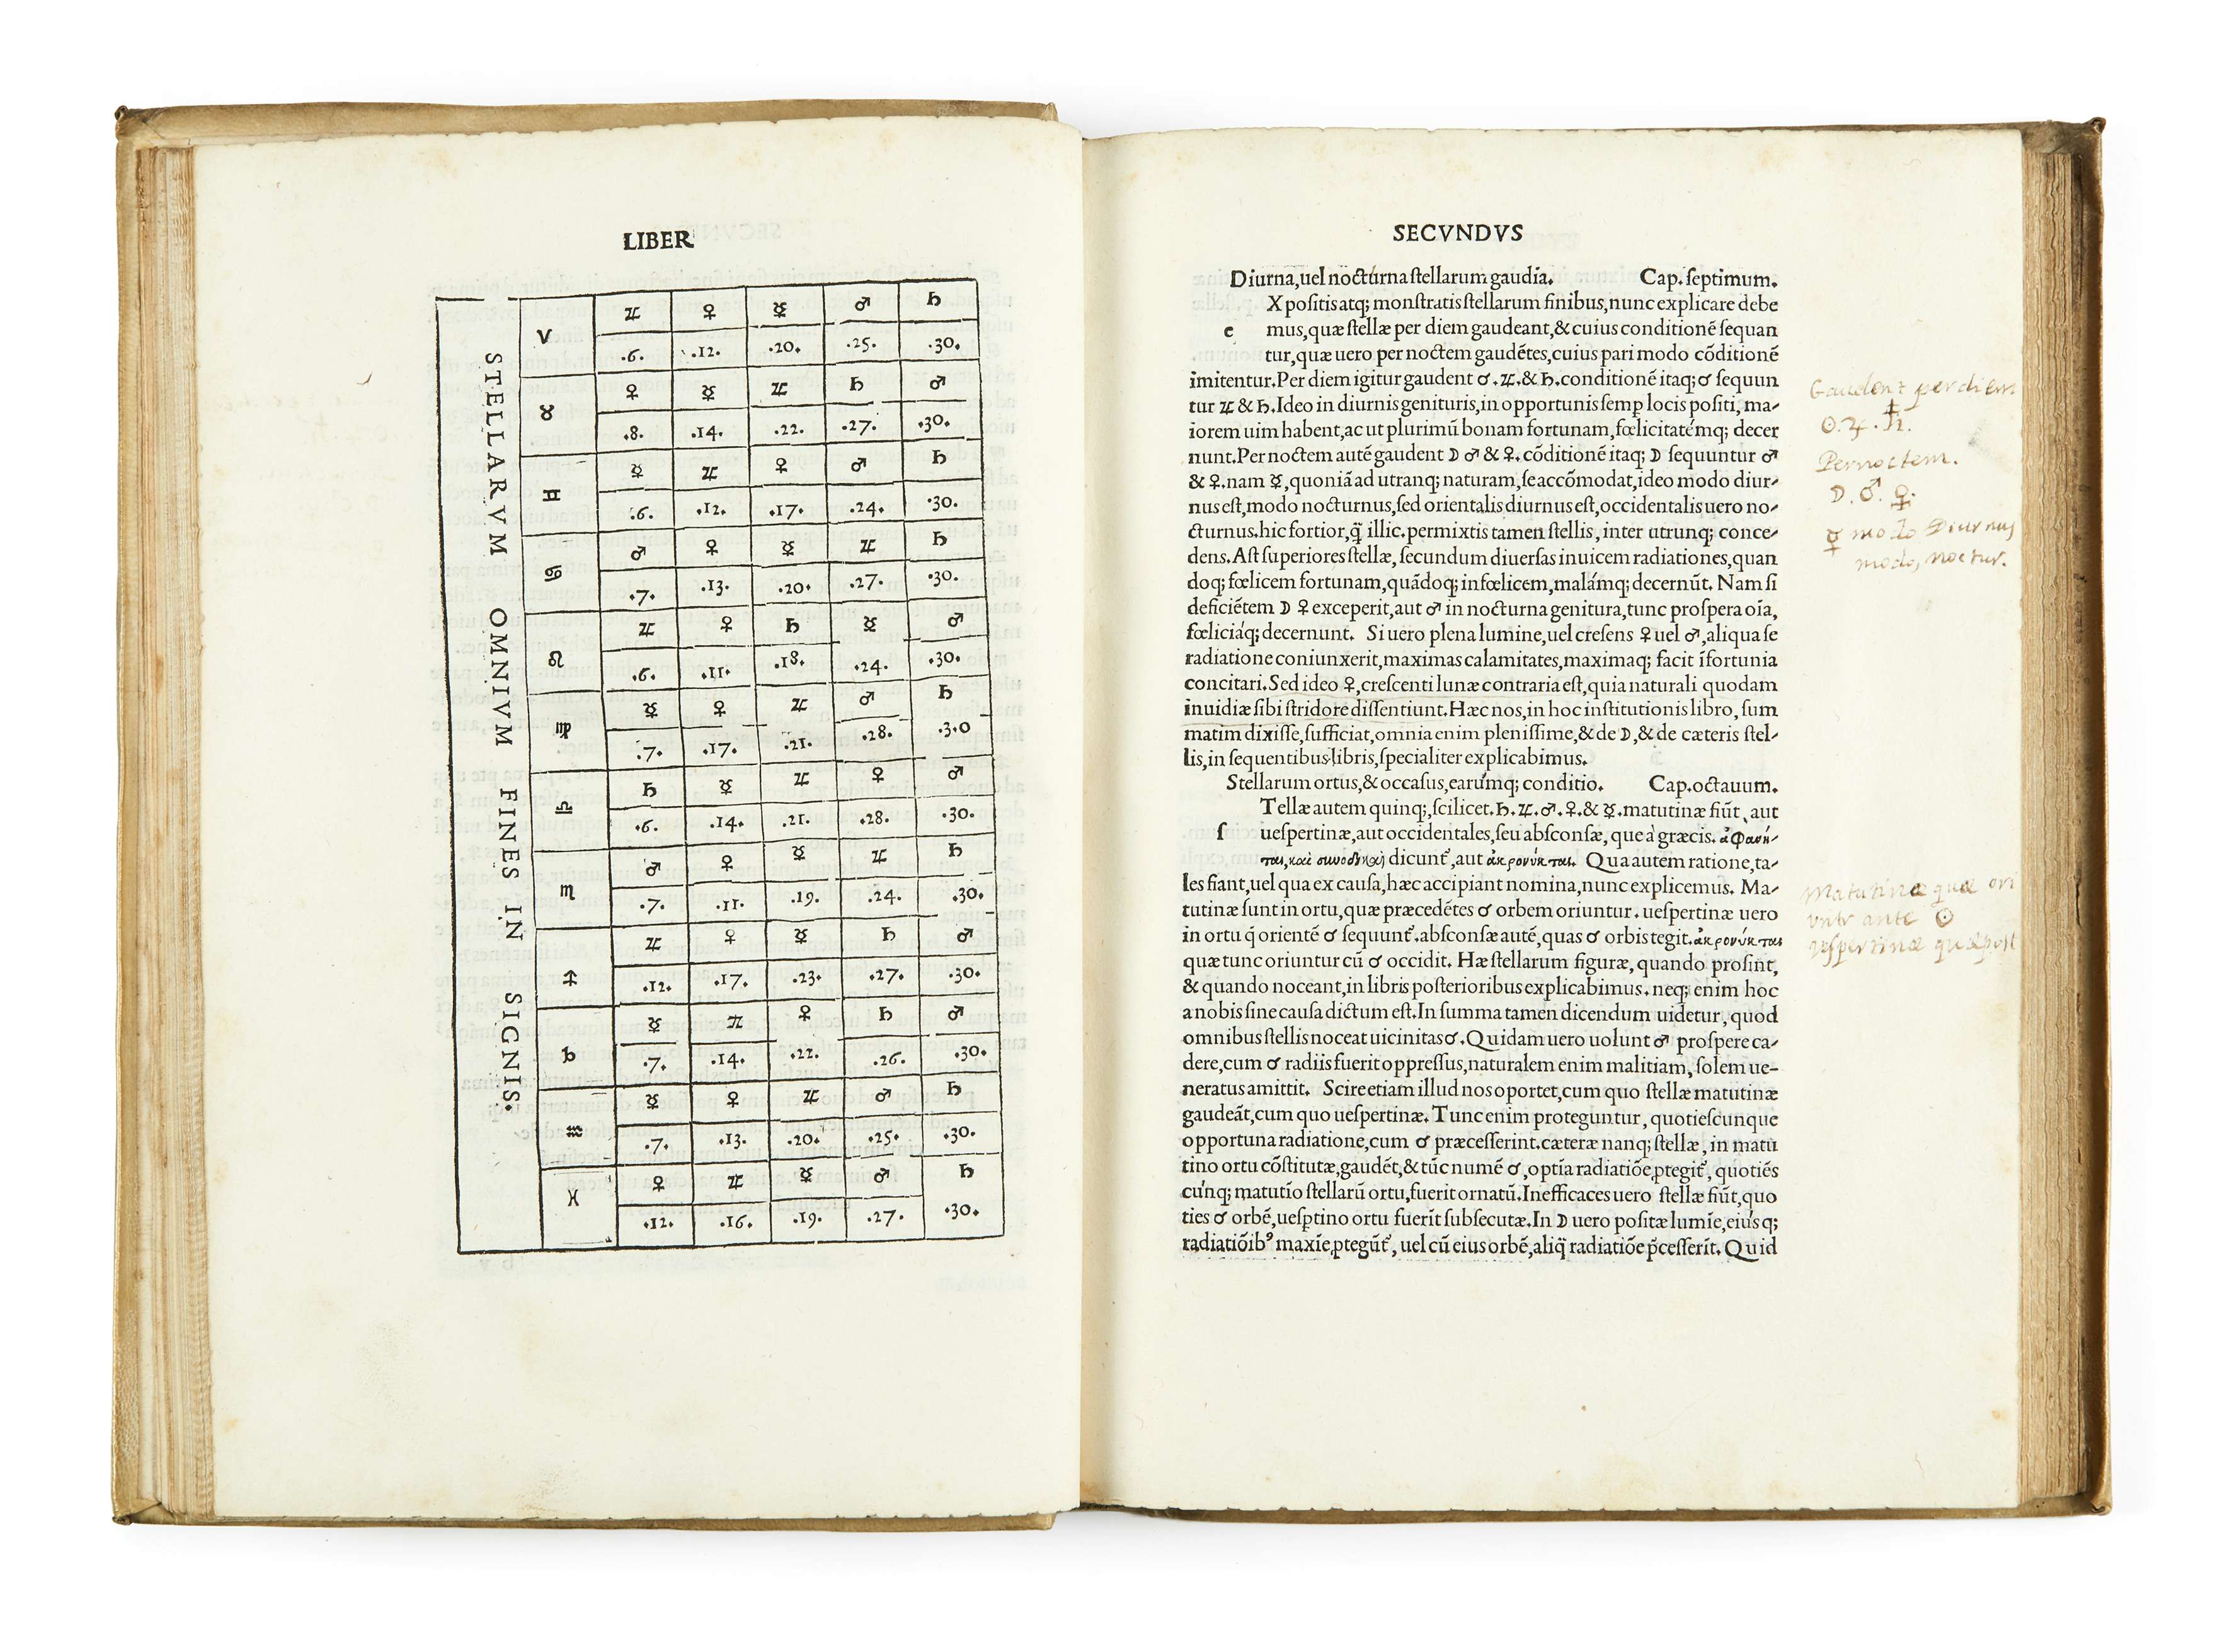 LIBER
STELLARVM OMNIVM FINES IN SIGNIS.
♈ ♃ ♀ ☿ ♂ ♄
.6. .12. .20. .25. .30.
♉ ♀ ☿ ♃ ♄ ♂
.8. .14. .22. .27. .30.
♊ ☿ ♃ ♀ ♂ ♄
.6. .12. .17. .24. .30.
♋ ♂ ♀ ☿ ♃ ♄
.7. .13. .20. .27. .30.
♌ ♃ ♀ ♄ ☿ ♂
.6. .11. .18. .24. .30.
♍ ☿ ♀ ♃ ♂ ♄
.7. .17. .21. .28. .3.0
♎ ♄ ☿ ♃ ♀ ♂
.6. .14. .21. .28. .30.
♏ ♂ ♀ ☿ ♃ ♄
.7. .11. .19. .24. .30.
♐ ♃ ♀ ☿ ♄ ♂
.12. .17. .23. .27. .30.
♑ ☿ ♃ ♀ ♄ ♂
.7. .14. .22. .26. .30.
♒ ☿ ♀ ♃ ♂ ♄
.7. .13. .20. .25. .30.
♓ ♀ ♃ ☿ ♂ ♄
.12. .16. .19. .27. .30.
SECVNDVS
Diurna,uel nocturna ſtellarum gaudia. Cap. ſeptimum.
Xpoſitis atq; monſtratis ſtellarum finibus,nunc explicare debe
e mus,quæ ſtellæ per diem gaudeant,& cuius conditionē ſequan
tur,quæ uero per noctem gaudētes,cuius pari modo cōditionē
imitentur.Per diem igitur gaudent ♂.♃.& ♄.conditionē itaq; ♂ ſequun
tur ♃ & ♄.Ideo in diurnis genituris,in opportunis ſemp locis poſiti, ma-
iorem uim habent,ac ut plurimū bonam fortunam,fœlicitatémq; decer
nunt.Per noctem autē gaudent ☽ ♂ & ♀.cōditionē itaq; ☽ ſequuntur ♂
& ♀.nam ☿,quoniā ad utranq; naturam,ſe accōmodat,ideo modo diur-
nus eſt,modo nocturnus,ſed orientalis diurnus eſt,occidentalis uero no-
cturnus.hic fortior,q̄ illic.permixtis tamen ſtellis, inter utrunq; conce-
dens.Aſt ſuperiores ſtellæ, ſecundum diuerſas inuicem radiationes,quan
doq; fœlicem fortunam,quādoq; infœlicem,malámq; decernūt. Nam ſi
deficiētem ☽ ♀ exceperit,aut ♂ in nocturna genitura,tunc proſpera oīa,
fœliciáq; decernunt. Si uero plena lumine,uel creſens ♀ uel ♂,aliqua ſe
radiatione coniunxerit,maximas calamitates,maximaq; facit īfortunia
concitari.Sed ideo ♀,creſcenti lunæ contraria eſt,quia naturali quodam
inuidiæ ſibi ſtridore diſſentiunt.Hæc nos,in hoc inſtitutionis libro, ſum
matim dixiſſe,ſufficiat,omnia enim pleniſſime,& de ☽,& de cæteris ſtel-
lis,in ſequentibus libris,ſpecialiter explicabimus.
Stellarum ortus,& occaſus,earúmq; conditio. Cap.octauum.
Tellæ autem quinq;,ſcilicet.♄.♃.♂.♀.& ☿.matutinæ fiūt, aut
ſ ueſpertinæ,aut occidentales,ſeu abſconſæ, que à græcis. ἀφανή-
ται,καὶ συνοδικαὶ dicunt᷑,aut ἀκρονύκται. Qua autem ratione,ta-
les fiant,uel qua ex cauſa,hæc accipiant nomina,nunc explicemus. Ma-
tutinæ ſunt in ortu,quæ præcedētes ♂ orbem oriuntur. ueſpertinæ uero
in ortu q̄ orientē ♂ ſequunt᷑.abſconſæ autē,quas ♂ orbis tegit.ἀκρονύκται
quæ tunc oriuntur cū ♂ occidit. Hæ ſtellarum figuræ, quando proſint,
& quando noceant,in libris poſterioribus explicabimus. neq; enim hoc
a nobis ſine cauſa dictum eſt.In ſumma tamen dicendum uidetur, quod
omnibus ſtellis noceat uicinitas ♂.Quidam uero uolunt ♂ proſpere ca-
dere,cum ♂ radiis fuerit oppreſſus,naturalem enim malitiam, ſolem ue-
neratus amittit. Scire etiam illud nos oportet,cum quo ſtellæ matutinæ
gaudeāt,cum quo ueſpertinæ.Tunc enim proteguntur, quotieſcunque
opportuna radiatione,cum ♂ præceſſerint.cæteræ nanq; ſtellæ, in matu
tino ortu cōſtitutæ,gaudēt,& tūc numē ♂,optīa radiatiōe ꝓtegit᷑, quotiēs
cúnq; matutīo ſtellarū ortu,fuerit ornatū.Inefficaces uero ſtellæ fiūt,quo
ties ♂ orbē,ueſptino ortu fuerīt ſubſecutæ.In ☽ uero poſitæ lumīe,eiúsq;
radiatiōib⁹ maxīe ꝓtegūt᷑, uel cū eius orbē,aliq̄ radiatiōe p̄ceſſerīt. Quid
Gaudent per diem
☉.♃.♄.
Per noctem.
☽.♂.♀.
☿ modo Diurnus
modo, noctur.
Matutinæ quæ ori
untr ante ☉
veſpertinæ quæ poſt